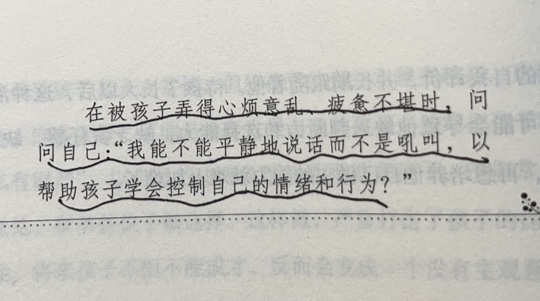 在被孩子弄得心烦意乱、疲惫不堪时，问
问自己：“我能不能平静地说话而不是吼叫，以
帮助孩子学会控制自己的情绪和行为？